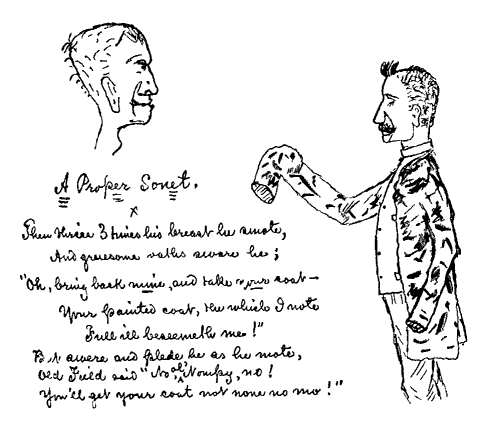 A Proper Sonet.
x
Then thrice 3 times his breast he smote,
And gruesome oaths swore he;
"Oh, bring back mine, and take your coat—
Your painted coat, the which I note
Full ill beseemeth me!"
But swere and plede he as he mote,
Old Field said "No old Nompy, no!
You'll get your coat not none no mo!"